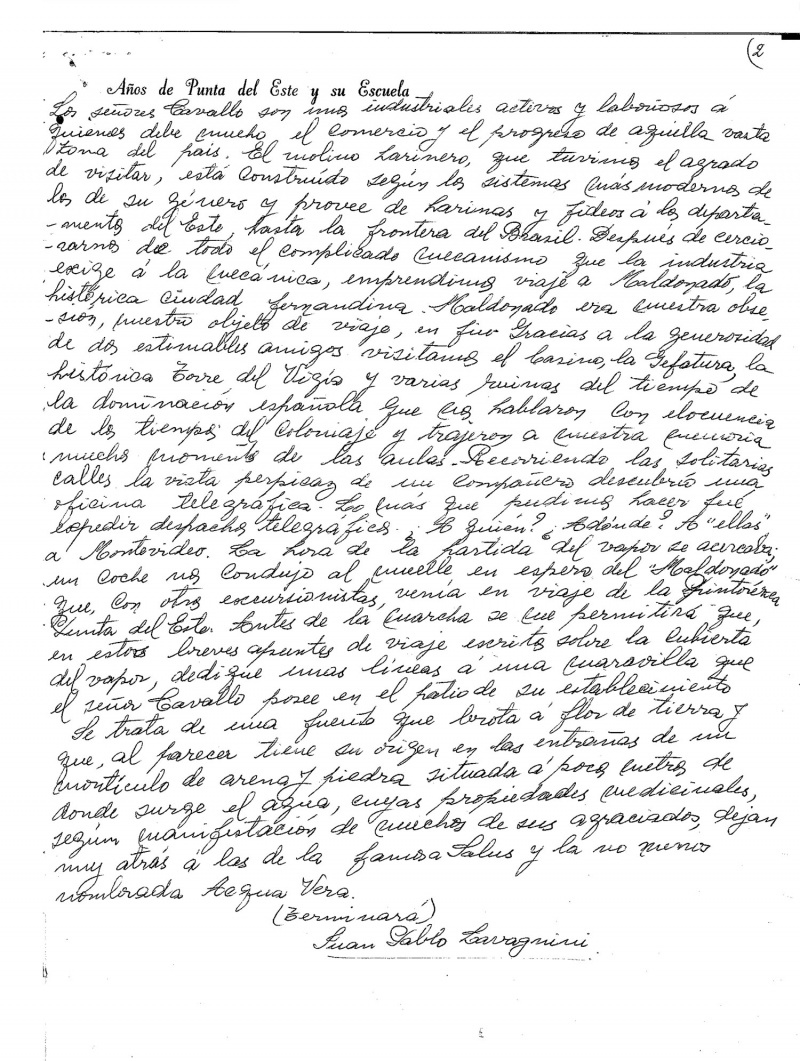 (2
Años de Punta del Este y su Escuela
Los señores Cavallo son unos industriales activos y laboriosos á
quienes debe mucho el comercio y el progreso de aquella vasta
zona del pais. El molino harinero, que tuvimos el agrado
de visitar, está construído según los sistemas más modernos de
los de su género y provee de harinas y fideos á los departa-
-mentos del Este, hasta la frontera del Brasil. Después de cercio-
-rarnos de todo el complicado mecanismo que la industria
exige á la mecánica, emprendimos viaje a Maldonado, la
histórica ciudad fernandina. Maldonado era nuestra obse-
-sión, nuestro objeto de viaje, en fin Gracias a la generosidad
de dos estimables amigos visitamos el Casino, la Gefatura, la
histórica Torre del Vigía y varias ruinas del tiempo de
la dominación española que nos hablaron con elocuencia
de los tiempos del coloniaje y trajeron a nuestra memoria
muchos momentos de las aulas. Recorriendo las solitarias
calles la vista perpicaz de un compañero descubrió una
oficina telegráfica. Lo más que pudimos hacer fué
expedir despachos telegráficos. ¿A quien? ¿Adónde? A "ellas"
a Montevideo. La hora de la partida del vapor se acercaba;
un coche nos condujo al muelle en espera del "Maldonado"
que, con otros excursionistas, venía en viaje de la pintoresca
Punta del Este. Antes de la marcha se me permitirá que,
en estos breves apuntes de viaje escritos sobre la cubierta
del vapor, dedique unas líneas á una maravilla que
el señor Cavallo posee en el patio de su establecimiento
Se trata de una fuente que brota á flor de tierra y
que, al parecer tiene su origen en las entrañas de un
montículo de arena y piedra situada á pocos metros de
donde surge el agua, cuyas propiedades medicinales,
según manifestación de muchos de sus agraciados, dejan
muy atrás á las de la famosa Salus y la no menos
nombrada Acqua Vera.
(Terminará)
Juan Pablo Lavagnini.